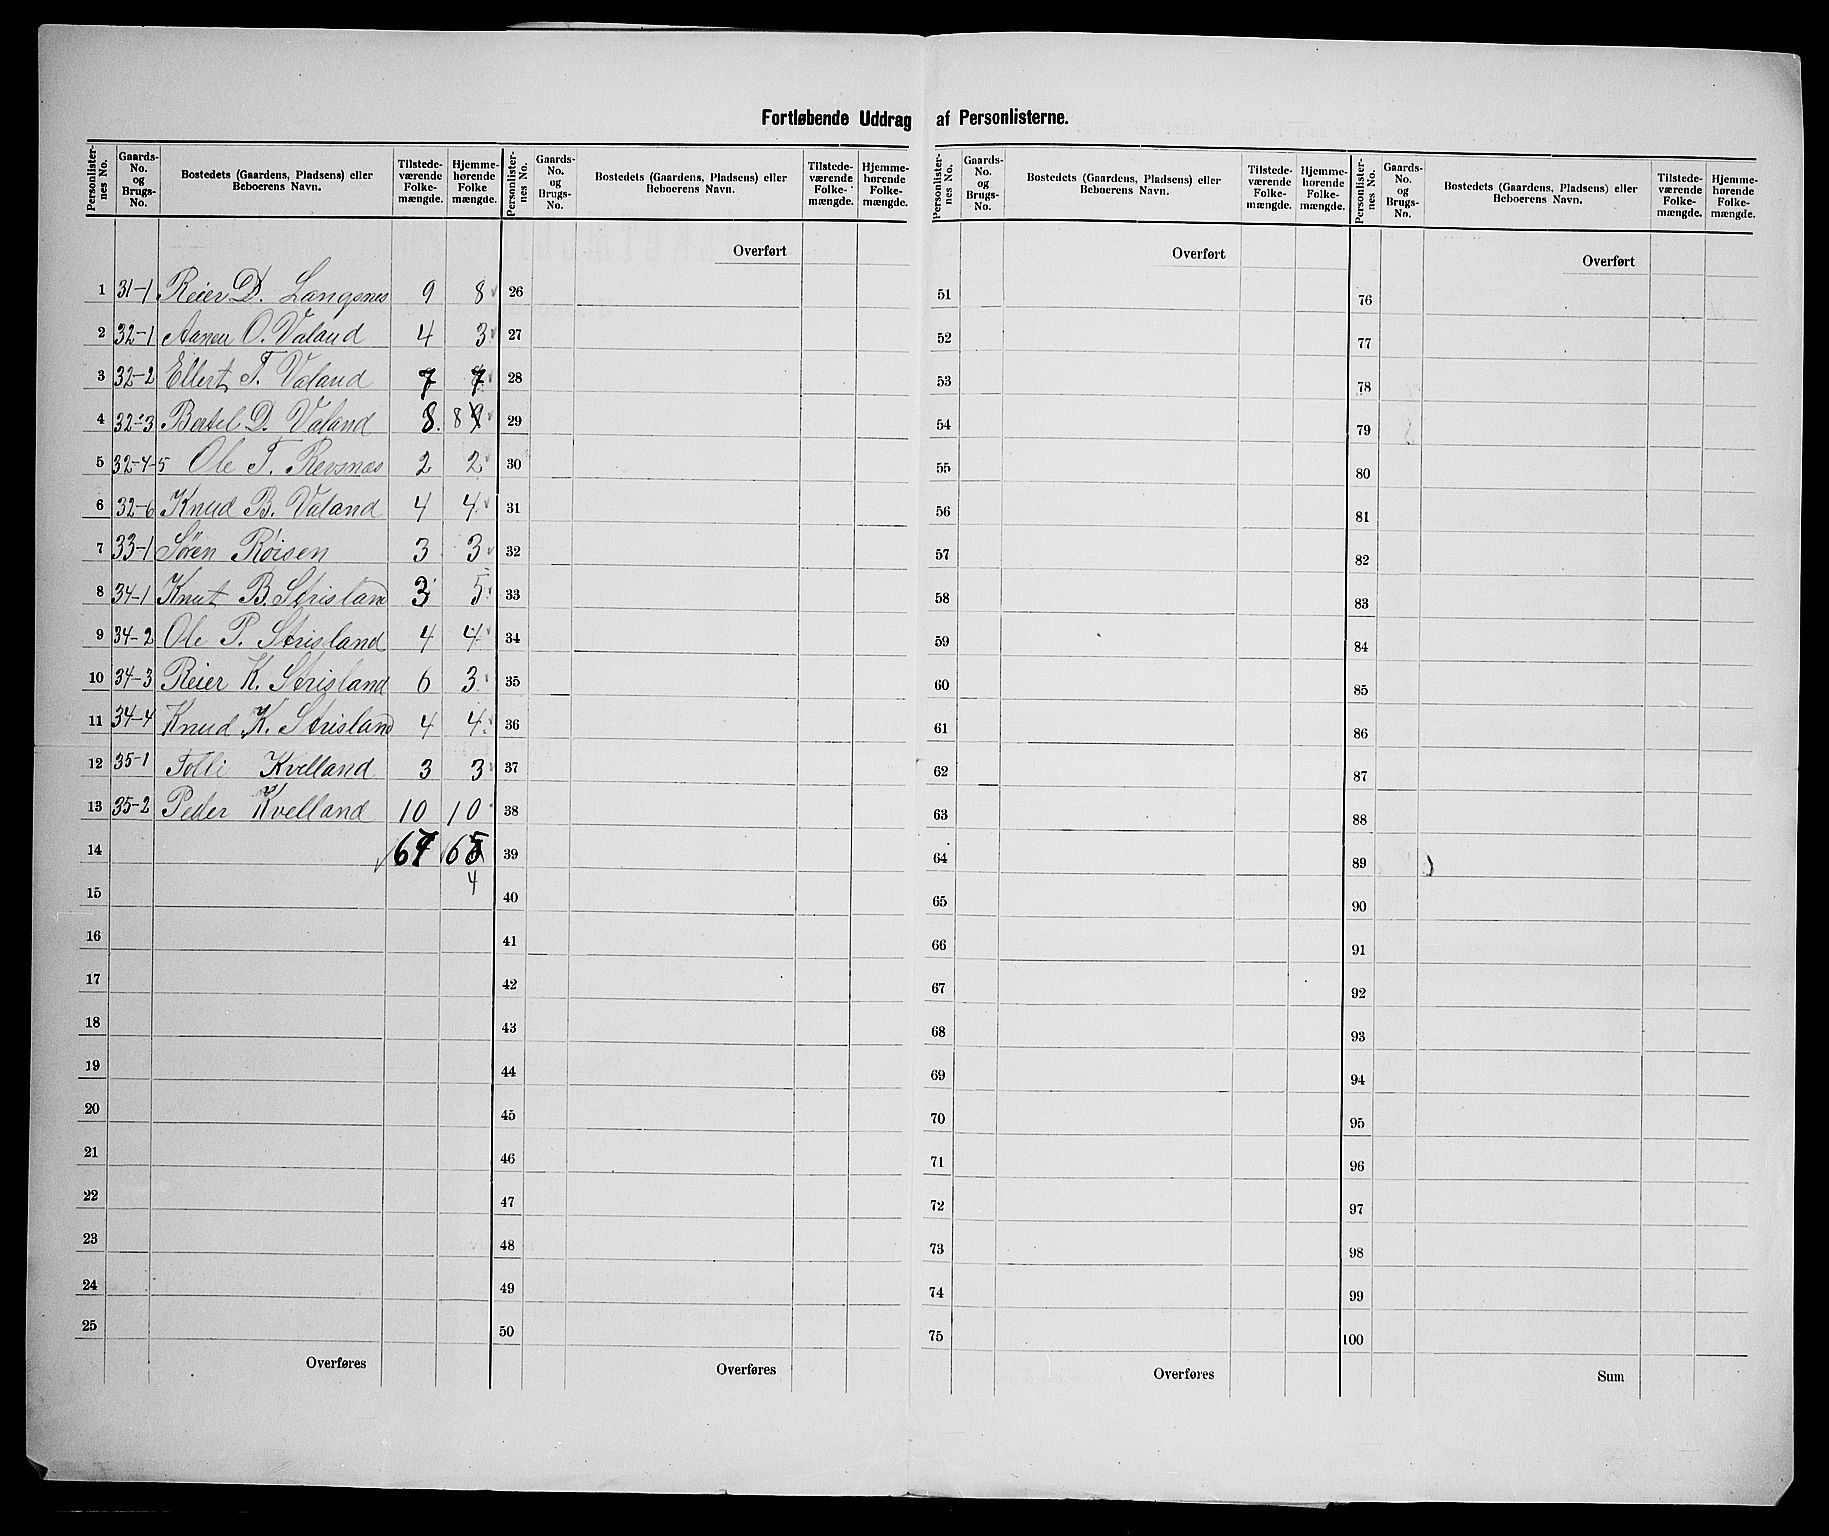 Fortløbende Uddrag af Personlisterne.
Personlister-nes No. Gaards-No. og Brugs-No. Bostedets (Gaardens, Pladsens) eller Beboerens Navn. Tilstede-værende Folke-mængde. Hjemme-hørende Folke mængde.
Personlister-nes No. Gaards-No. og Brugs-No. Bostedets (Gaardens, Pladsens) eller Beboerens Navn. Tilstede-værende Folke-mængde. Hjemme-hørende Folke-mængde.
Personlister-nes No. Gaards-No. og Brugs-No. Bostedets (Gaardens, Pladsens) eller Beboerens Navn. Tilstede-værende Folke-mængde. Hjemme-hørende Folke-mængde.
Personlister-nes No. Gaards-No. og Brugs-No. Bostedets (Gaardens, Pladsens) eller Beboerens Navn. Tilstede-værende Folke-mængde. Hjemme-hørende Folke-mængde.
1 31-1 Reier D. Langsnes 9 8
2 32-1 Aanen O. Valand 4 3
3 32-2 Ellert T. Valand 7 7
4 32-3 Bertel D. Valand 8. 8
5 32-4-5 Ole T. Revsnæs 2 2
6 32-6 Knud B. Valand 4 4
7 33-1 Søren Røisen 3 3
8 34-1 Knut B. Strisland 3 5
9 34-2 Ole P. Strisland 4 4
10 34-3 Reier K. Strisland 6 3
11 34-4 Knud K. Strisland 4 4
12 35-1 Tolli Kvelland 3 3
13 35-2 Peder Kvelland 10 10
14 67 65
4
15
16
17
18
19
20
21
22
23
24
25
Overføres
Overført
26
27
28
29
30
31
32
33
34
35
36
37
38
39
40
41
42
43
44
45
46
47
48
49
50
Overføres
Overført
51
52
53
54
55
56
57
58
59
60
61
62
63
64
65
66
67
68
69
70
71
72
73
74
75
Overføres
Overført
76
77
78
79
80
81
82
83
84
85
86
87
88
89
90
91
92
93
94
95
96
97
98
99
100
Sum